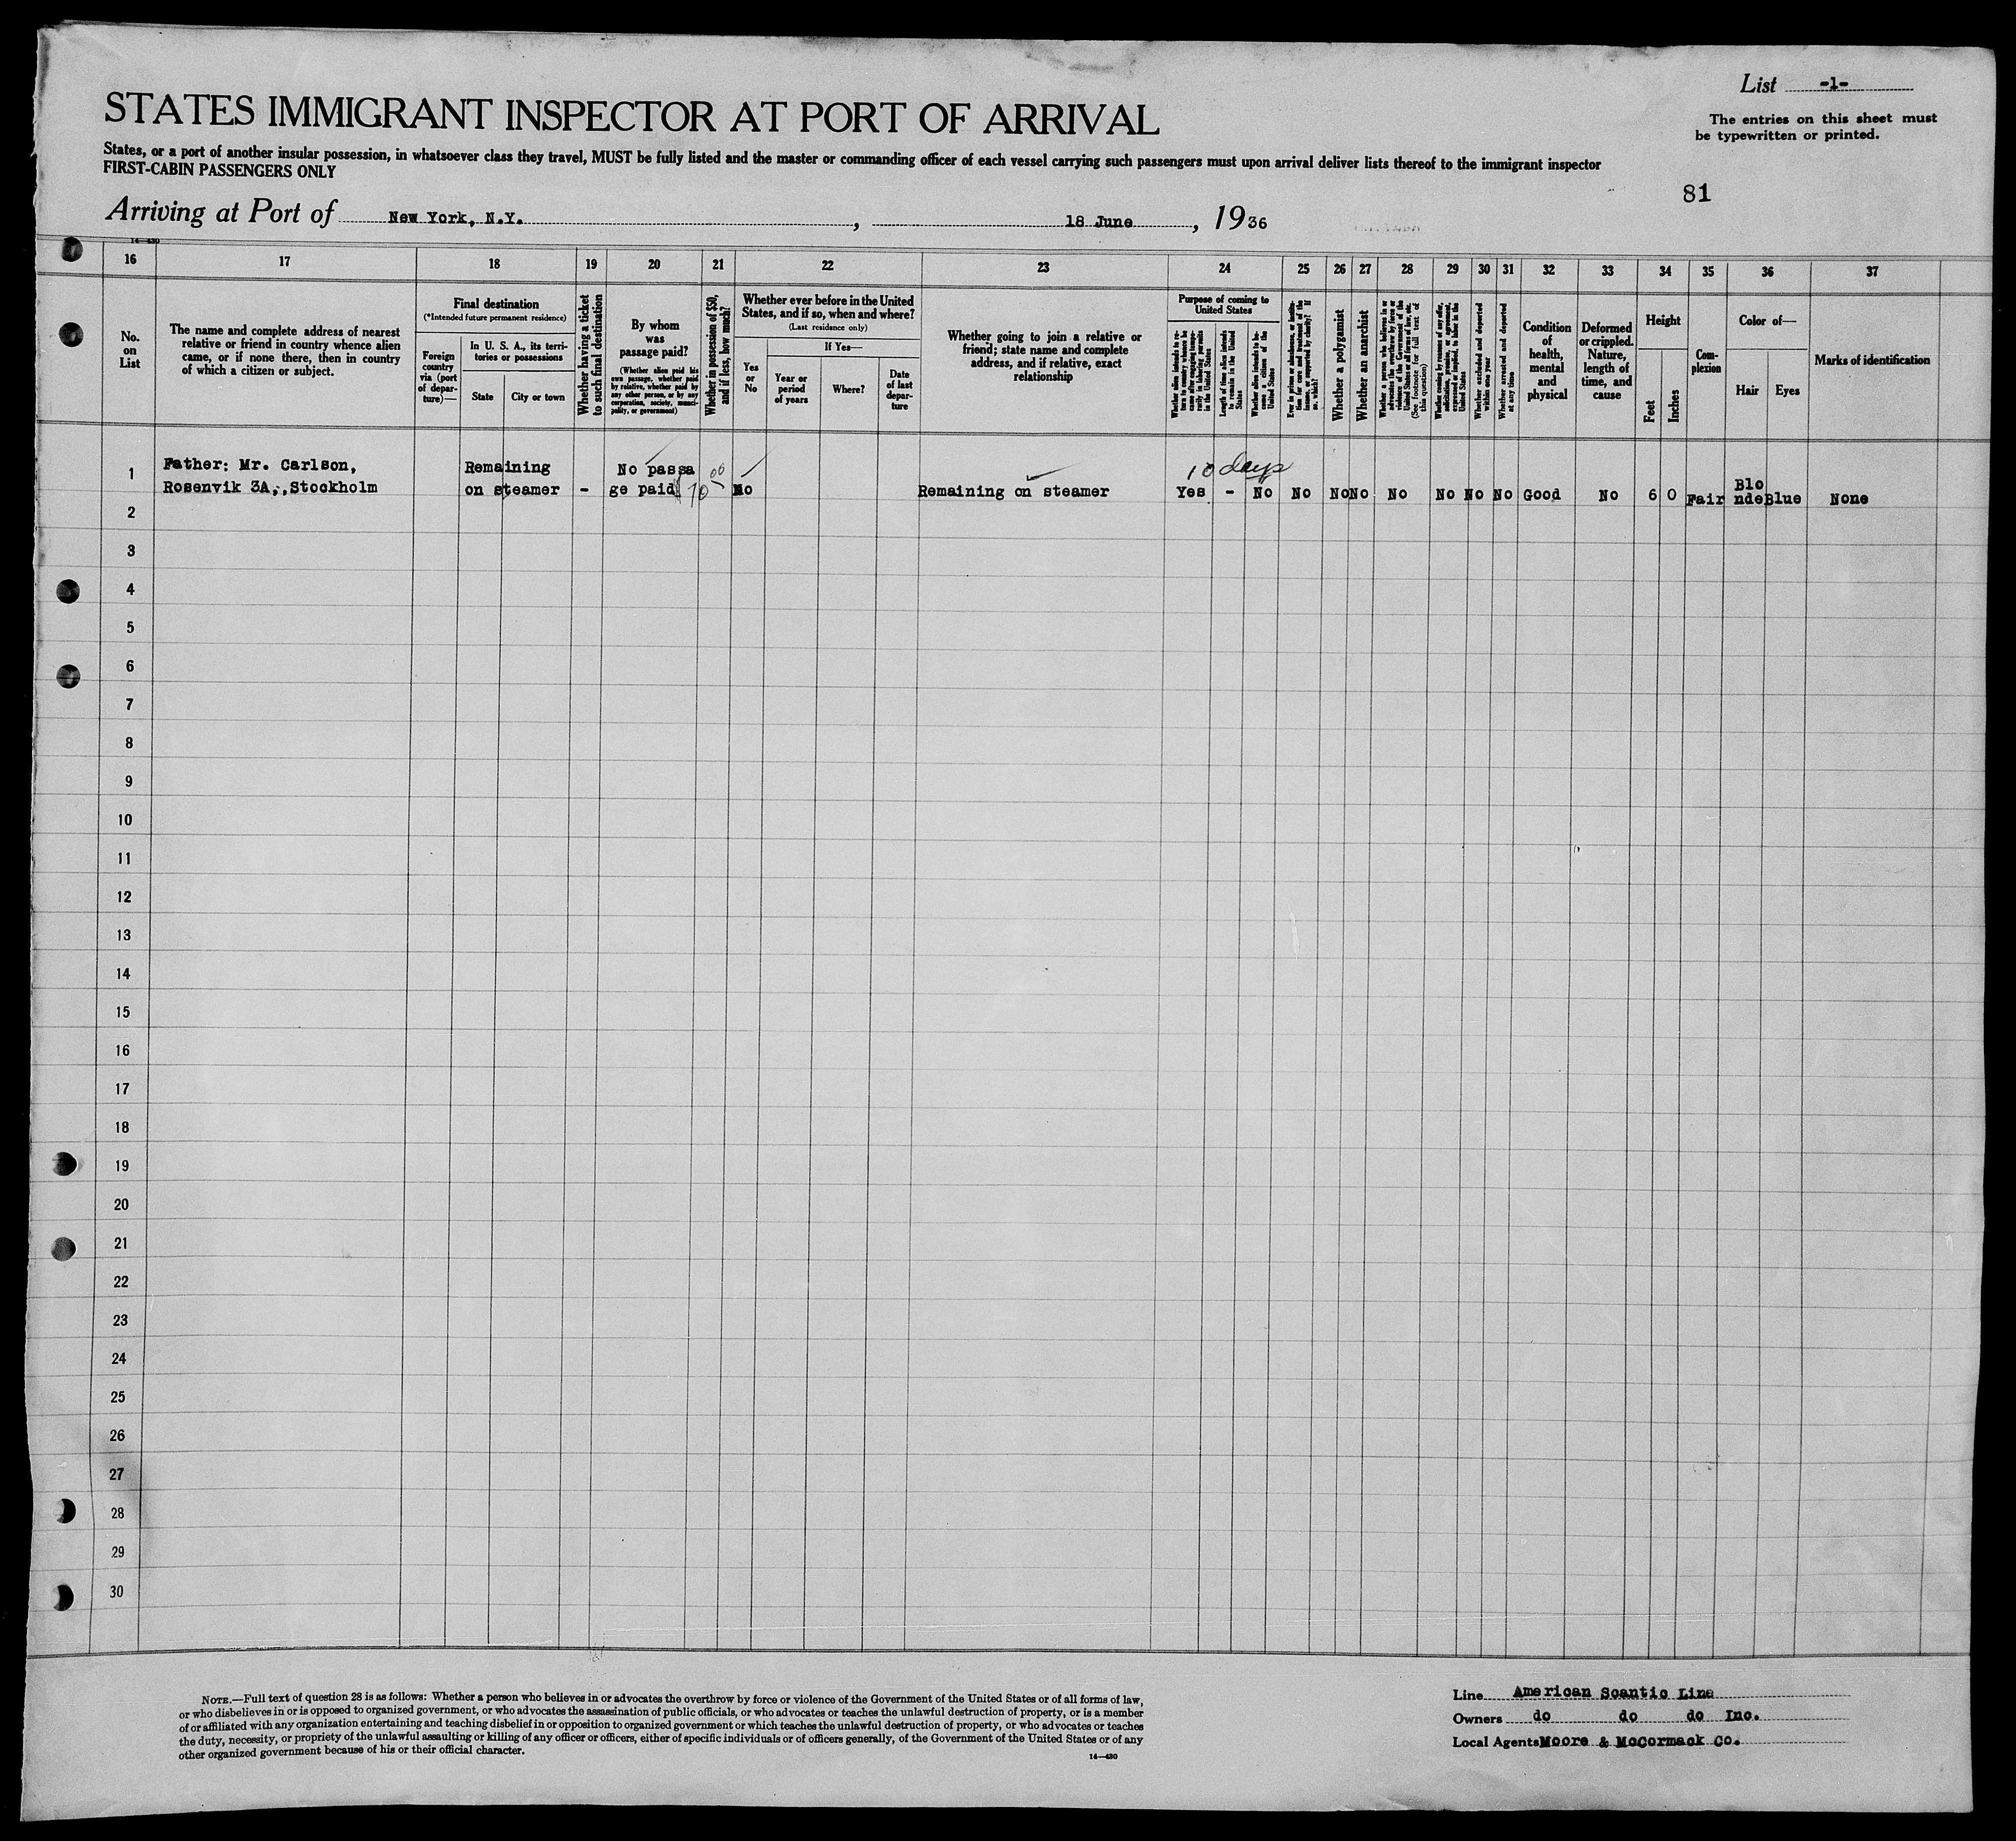 List -1-
The entries on this sheet must
be typewritten or printed.
STATES IMMIGRANT INSPECTOR AT PORT OF ARRIVAL
States, or a port of another insular possession, in whatsoever class they travel, MUST be fully listed and the master or commanding officer of each vessel carrying such passengers must upon arrival deliver lists thereof to the immigrant inspector
FIRST-CABIN PASSENGERS ONLY
81
Arriving at Port of New York, N.Y. , 18 June , 1936
14-430
16 17 18 19 20 21 22 23 24 25 26 27 28 29 30 31 32 33 34 35 36 37
No.
on
List
The name and complete address of nearest
relative or friend in country whence alien
came, or if none there, then in country
of which a citizen or subject.
Final destination
(*Intended future permanent residence)
Foreign
country
via (port
of depar-
ture)—
In U. S. A., its terri-
tories or possessions
State
City or town
Whether having a ticket
to such final destination
By whom
was
passage paid?
(Whether alien paid his
own passage, whether paid
by relative, whether paid by
any other person, or by any
corporation, society, munici-
pality, or government)
Whether in possession of $50,
and if less, how much?
Whether ever before in the United
States, and if so, when and where?
(Last residence only)
Yes
or
No
If Yes—
Year or
period
of years
Where?
Date
of last
depar-
ture
Whether going to join a relative or
friend; state name and complete
address, and if relative, exact
relationship
Purpose of coming to
United States
Whether alien intends to re-
turn to country whence he
came after engaging tempo-
rarily in laboring pursuits
in the United States
Length of time alien intends
to remain in the United
States
Whether alien intends to be-
come a citizen of the
United States
Ever in prison or almshouse, or institu-
tion for care and treatment of the
insane, or supported by charity? If
so, which?
Whether a polygamist
Whether an anarchist
Whether a person who believes in or
advocates the overthrow by force or
violence of the Government of the
United States or all forms of law, etc.
(See footnote for full text of
this question)
Whether coming by reason of any offer,
solicitation, promise, or agreement,
expressed or implied, to labor in the
United States
Whether excluded and deported
within one year
Whether arrested and deported
at any time
Condition
of
health,
mental
and
physical
Deformed
or crippled.
Nature,
length of
time, and
cause
Height
Feet
Inches
Com-
plexion
Color of—
Hair
Eyes
Marks of identification
1 Father: Mr. Carlson, Remaining No passa 10 days Blo
Rosenvik 3A,,Stockholm on steamer - ge paid $70 00 No Remaining on steamer Yes - No No No No No No No No Good No 6 0 Fair nde Blue None
2
3
4
5
6
7
8
9
10
11
12
13
14
15
16
17
18
19
20
21
22
23
24
25
26
27
28
29
30
NOTE.—Full text of question 28 is as follows: Whether a person who believes in or advocates the overthrow by force or violence of the Government of the United States or of all forms of law,
or who disbelieves in or is opposed to organized government, or who advocates the assassination of public officials, or who advocates or teaches the unlawful destruction of property, or is a member
of or affiliated with any organization entertaining and teaching disbelief in or opposition to organized government or which teaches the unlawful destruction of property, or who advocates or teaches
the duty, necessity, or propriety of the unlawful assaulting or killing of any officer or officers, either of specific individuals or of officers generally, of the Government of the United States or of any
other organized government because of his or their official character.
14-430
Line American Scantic Line
Owners do do do Inc.
Local Agents Moore & McCormack Co.